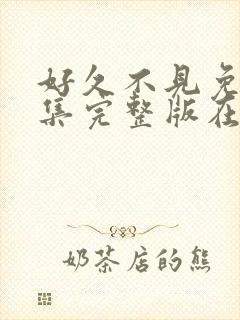 好久不见免
集完整版在
奶茶店的熊